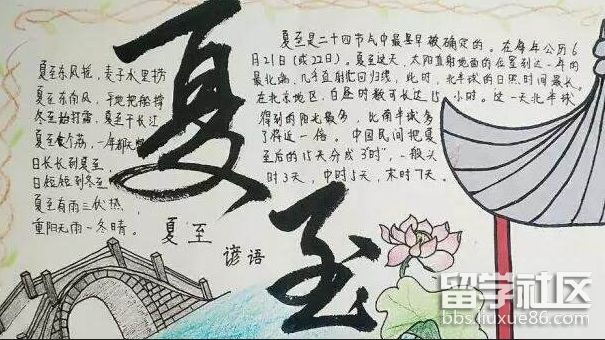 夏至
夏至东风摇，麦子水里捞
夏至东南风，平地把船撑
冬至始打霜，夏至干长江
夏至食个荔，一年都
日长长到夏至，
日短短到冬至
夏至有雨三伏热，
重阳无雨一冬晴。
夏至
谚语
夏至是二十四节气中最早被确定的。在每年公历6
月21日（或22日）。夏至这天，太阳直射地面的位置到达一年的
最北端，几乎直射北回归线，此时，北半球的日照时间最长。
在北京地区，白昼时数可长达15小时。这一天北半球
得到的阳光最多，比南半球多
了将近一倍。中国民间把夏
至后的15天分成3"时"，一般头
时3天，中时5天，末时7天。
留学社区
bbs.liuxue86.com